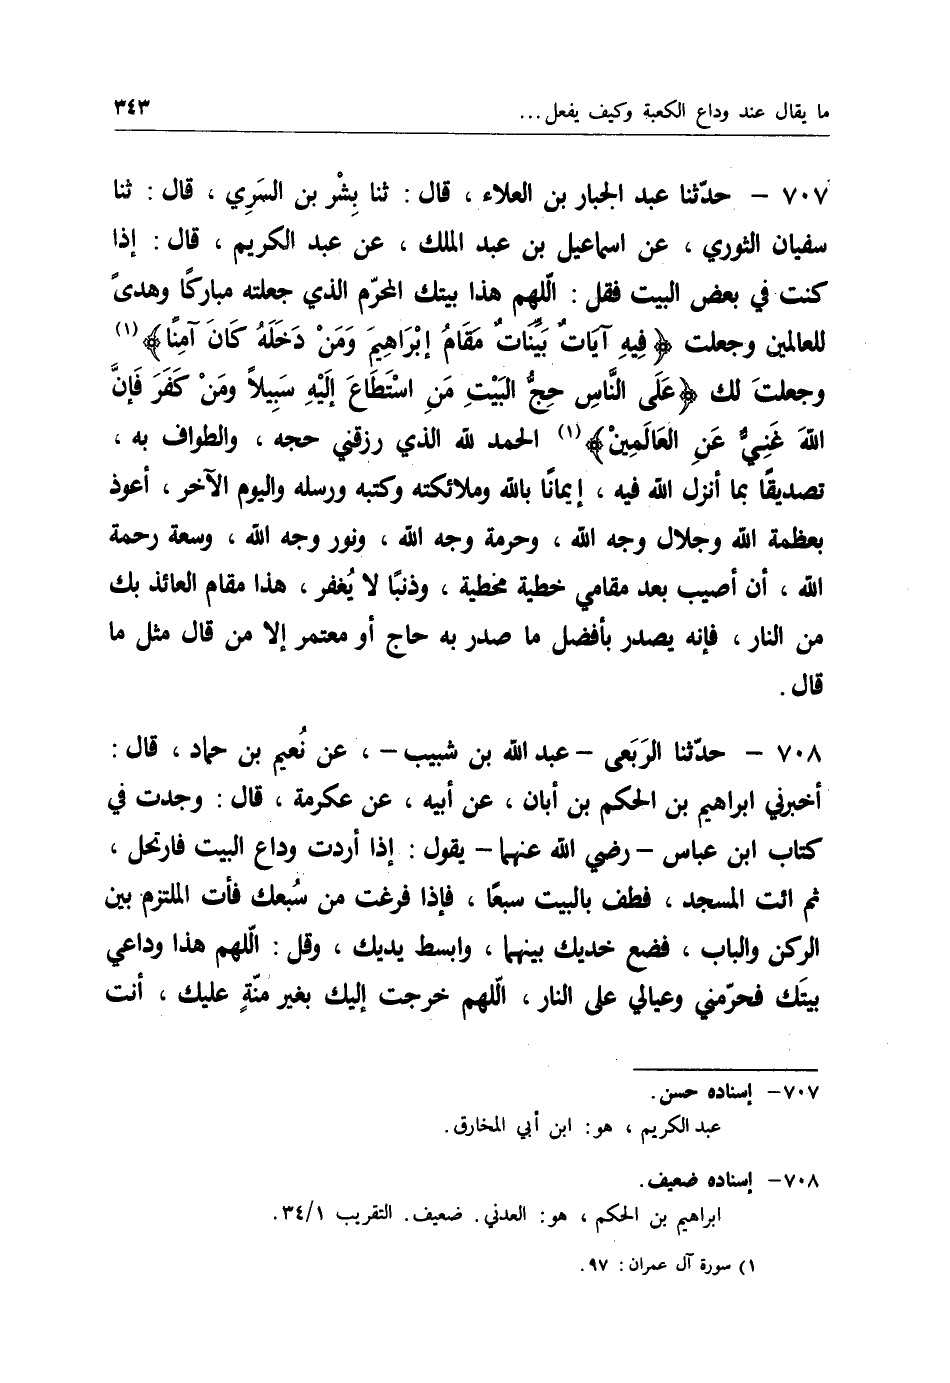 ما يقال عند وداع الكعبة وكيف يفعل ... ٣٤٣
٧٠٧ – حدّثنا عبد الجبار بن العلاء ، قال : ثنا بِشْر بن السَري ، قال : ثنا
سفيان الثوري ، عن اسماعيل بن عبد الملك ، عن عبد الكريم ، قال : إذا
كنت في بعض البيت فقل : اللّهم هذا بيتك المحرّم الذي جعلته مباركًا وهدىً
للعالمين وجعلت ﴿فِيهِ آيَاتٌ بَيِّنَاتٌ مَقَامُ إبْرَاهِيمَ وَمَنْ دَخَلَهُ كَانَ آمِنًا﴾(١)
وجعلتَ لك ﴿عَلَى النَّاسِ حِجُّ البَيْتِ مَنِ اسْتَطَاعَ إلَيْهِ سَبِيلاً ومَنْ كَفَرَ فَإنَّ
اللهَ غَنِيٌّ عَنِ العَالَمِينْ﴾(١) الحمد لله الذي رزقني حجه ، والطواف به ،
تصديقًا بما أنزل الله فيه ، إيمانًا بالله وملائكته وكتبه ورسله واليوم الآخر ، أعوذ
بعظمة الله وجلال وجه الله ، وحرمة وجه الله ، ونور وجه الله ، وسعة رحمة
الله ، أن أصيب بعد مقامي خطية مخطية ، وذنبًا لا يُغفر ، هذا مقام العائذ بك
من النار ، فإنه يصدر بأفضل ما صدر به حاج أو معتمر إلا من قال مثل ما
قال .
٧٠٨ – حدّثنا الرَبَعى – عبد الله بن شبيب – ، عن نُعيم بن حماد ، قال :
أخبرني ابراهيم بن الحكم بن أبان ، عن أبيه ، عن عكرمة ، قال : وجدت في
كتاب ابن عباس – رضي الله عنهما – يقول : إذا أردت وداع البيت فارتحل ،
ثم ائت المسجد ، فطف بالبيت سبعًا ، فإذا فرغت من سُبعك فأت الملتزم بين
الركن والباب ، فضع خديك بينهما ، وابسط يديك ، وقل : اللّهم هذا وداعي
بيتَك فحرّمني وعيالي على النار ، اللّهم خرجت إليك بغير منّةٍ عليك ، أنت
٧٠٧ – إسناده حسن .
عبد الكريم ، هو : ابن أبي المخارق .
٧٠٨ – إسناده ضعيف .
ابراهيم بن الحكم ، هو : العدني . ضعيف . التقريب ٣٤/١ .
١) سورة آل عمران : ٩٧ .